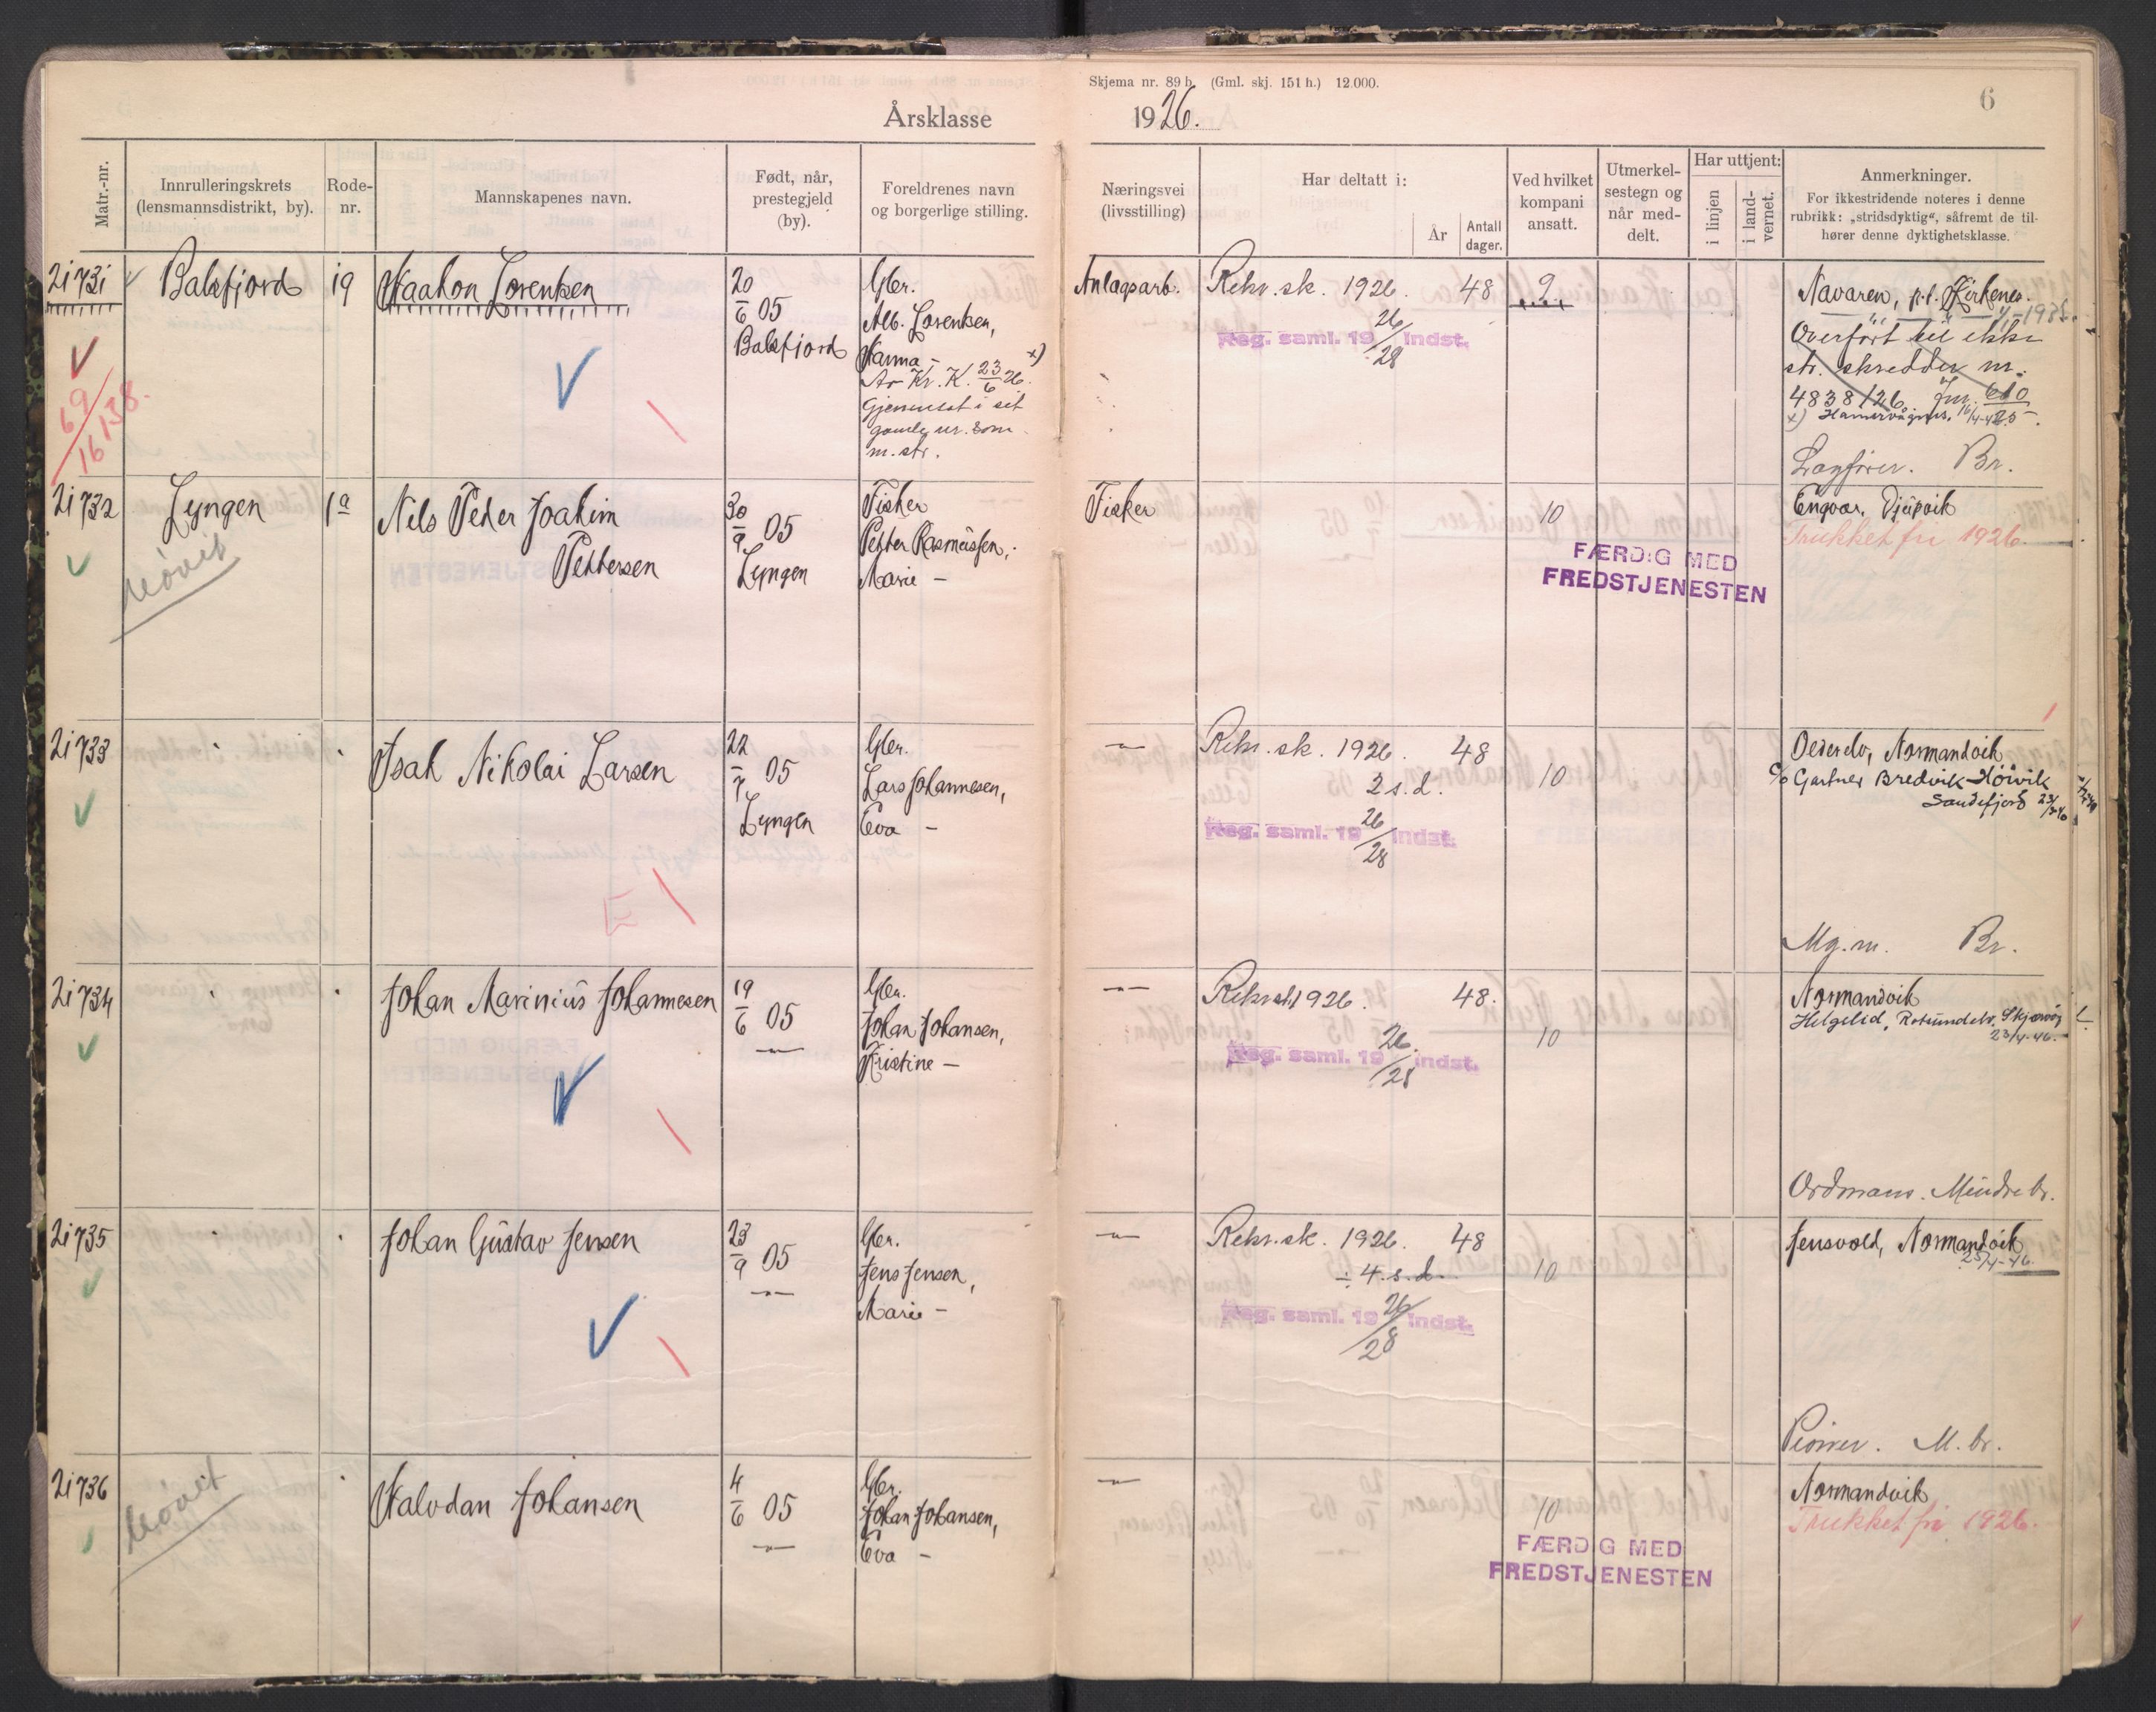 Skjema nr. 89 b. (Gml. skj. 151 h.) 12.000.
6
Årsklasse 1926.
Matr.-nr.
Innrulleringskrets
(lensmannsdistrikt, by).
Rode-
nr.
Mannskapenes navn.
Født, når,
prestegjeld
(by).
Foreldrenes navn
og borgerlige stilling.
Næringsvei
(livsstilling)
Har deltatt i:
År
Antall
dager.
Ved hvilket
kompani
ansatt.
Utmerkel-
sestegn og
når med-
delt.
Har uttjent:
i linjen
i land-
vernet.
Anmerkninger.
For ikkestridende noteres i denne
rubrikk: „stridsdyktig“, såfremt de til-
hører denne dyktighetsklasse.
21731 Balsfjord 19 Haakon Lorentzen
20/6 05
Balsfjord
Gbr.
Alb. Lorentzen,
Hanna –
Av Kr. K. 23/6 26. x)
Gjeninsat i sit
gamle nr. som
m. str.
Anlagsarb.
Rekr. sk. 1926. 48
Reg. saml. 19 26/28 indst.
9
Navaren, p.t. Kirkenes.
Overført til ikke
str. skredder nr.
4838/26
x) 16/4-46
Lagfører. Br.
69/16 138.
21732 Lyngen 1a Nils Peder Joakim
Pettersen
30/9 05
Lyngen
Fisker
Petter Rasmussen,
Marie –
Fisker
10
FÆRDIG MED
FREDSTJENESTEN
Engvor, Djupvik
Trukket fri 1926
21733 Isak Nikolai Larsen
22/7 05
Lyngen
Gbr.
Lars Johannesen,
Eva –
–"–
Rekr. sk. 1926. 48
2 s.d.
Reg. saml. 19 26/28 indst.
10
Normandvik
c/o Gartner Bredvik
Sandefjord
Mg.m. Br.
21734 Johan Marinius Johannesen
19/6 05
–"–
Gbr.
Johan Johansen,
Kristine –
–"–
Rekr.sk. 1926. 48.
Reg. saml. 19 26/28 indst.
10
Normandvik
Helgelid, Rotsundelv, Skjervøy
23/4-46.
Ordonans. Mindre br.
21735 Johan Gustav Jensen
23/9 05
–"–
Gbr.
Jens Jensen,
Marie –
–"–
Rekr. sk. 1926. 48
÷ 4 s.d.
Reg. saml. 19 26/28 indst.
10
Jensvold, Normandvik
25/4-46.
Pioner. M. br.
21736 Halvdan Johansen
4/6 05
–"–
Gbr.
Johan Johansen,
Eva –
–"–
10
FÆRDIG MED
FREDSTJENESTEN
Normandvik
Trukket fri 1926.